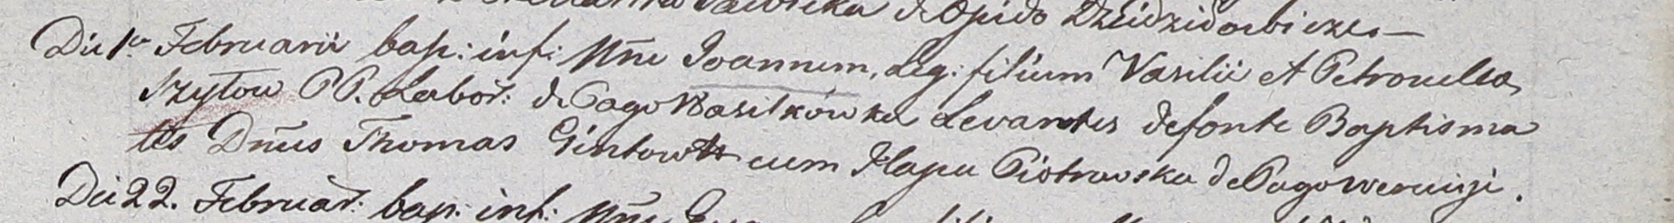 de Opido Dziedziłowicze—
Die 1a Februarii bap: inf: Nñe Joannem, Leg: filium Vasilii et Petronella
Szytow PP. Labor: de Pago Wasilkówka Levantes de fonte Baptisma
tis Dñus Thomas Gintowtt cum Hapa Piotrowska de Pago
Die 22. Februar: bap: inf: Nñe